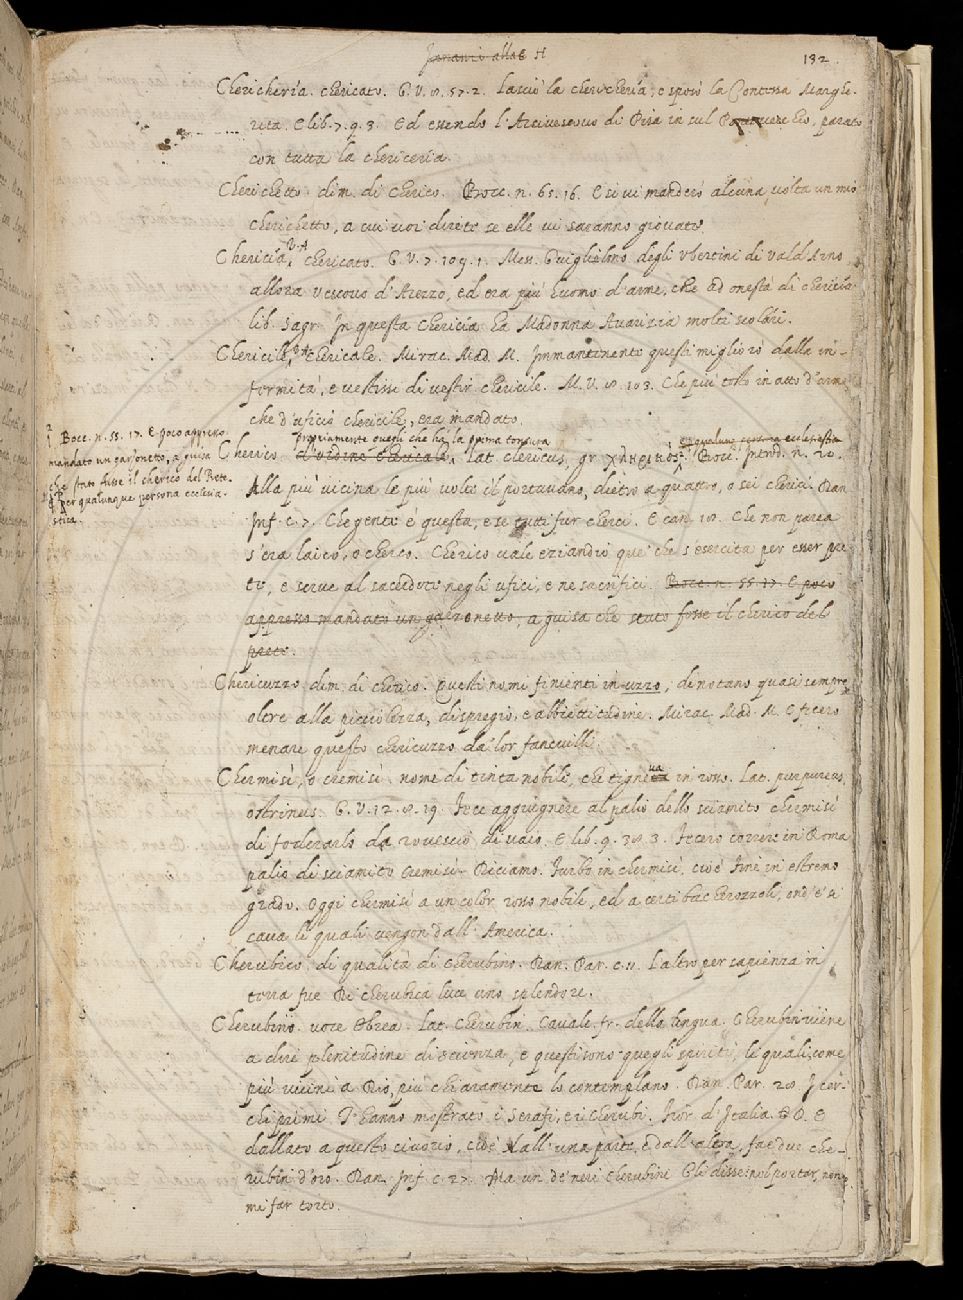 Innanzi alla H
132
Chericheria. chericato. G.V. 8. 57. 2. Lasciò la chericheria, e sposò la Contessa Marghe-
rita. E lib. 7. 9. 3. Ed essendo l'Arcivescovo di Pisa in sul parato
con tutta la chericeria.
Cherichetto. dim. di cherico. Bocc. n. 65. 16. E sì vi manderò alcuna volta un mio
cherichetto, a cui voi direte se elle vi saranno giovate.
Chericia, V.A. chericato. G.V. 7. 109. 1. Mess. Guiglielmo degli Ubertini di Vald'Arno
allora vescovo d'Arezzo, ed era più huomo d'arme, che ad onestà di chericia
lib. Sagr. In questa chericia ha Madonna Avarizia molti scolari.
Chericile, V.A. chericale. Mirac. Mad. M. Immantinente questi migliorò dalla in-
fermità, e vestissi di vestir chericile. M.V. 8. 103. Che più tosto in atto d'arme
che d'uficio chericile, era mandato.
propriamente quegli che ha la prima tonsura
Cherico d'ordine chericale, Lat. clericus, gr. χληρικός. Bocc. Introd. n. 20.
Alla più vicina le più volte il portavano, dietro a quattro, o sei cherici. Dan.
Inf. c. 7. Che gente è questa, e se tutti fur cherci. E can. 18. Che non parea
s'era laico, o cherco. Cherico vale eziandio que' che s'esercita per esser pre-
te, e serve al sacerdote negli ufici, e ne sacrifici. Bocc. n. 55. 17. E poco
appresso mandato un garzonetto, a guisa che stato fosse il cherico del
prete.
2
Bocc. n. 55. 17. E poco appresso
mandato un garzonetto, a guisa
che stato fosse il cherico del Prete.
per qualunque persona ecclesia-
stica.
Chericuzzo dim. di cherico. Questi nomi finienti in uzzo, denotano quasi sempre
oltre alla picciolezza, dispregio, e abbiettitudine. Mirac. Mad. M. E fecero
menare questo chericuzzo da' lor fanciulli.
Chermisi, o cremisi. nome di tinta nobile, che tigne in rosso. Lat. purpureus,
ostrineus. G.V. 12. 8. 19. Fece aggiugnere al palio dello sciamito chermisi
di foderarlo da rovescio di vaio. E lib. 9. 38. 3. Fecero correre in Roma
palio di sciamito cremisi. Diciamo. Furbo in chermisi, cioè fine in estremo
grado. Oggi chermisi a un color rosso nobile, ed a certi bacherozzoli, ond' e' si
cava li quali vengon dall'America.
Cherubico, di qualità di cherubino. Dan. Par. c. 11. L'altro per sapienza in
terra fue Di cherubica luce uno splendore.
Cherubino. voce Ebrea. Lat. Cherubin. Cavalc. fr. della lingua. Cherubin viene
a dire plenitudine di scienza, e questi sono quegli spiriti, li quali, come
più vicini a Dio, più chiaramente lo contemplano. Dan. Par. 28. I cer-
chi primi T'hanno mostrato i Serafi, e i Cherubi. Fior. d'Italia. D. E
dallato a questo civorio, cioè dall'una parte, e dall'altra, fae due che-
rubin d'oro. Dan. Inf. c. 27. Ma un de' neri Cherubini Gli disse: nol portar, non
mi far torto.